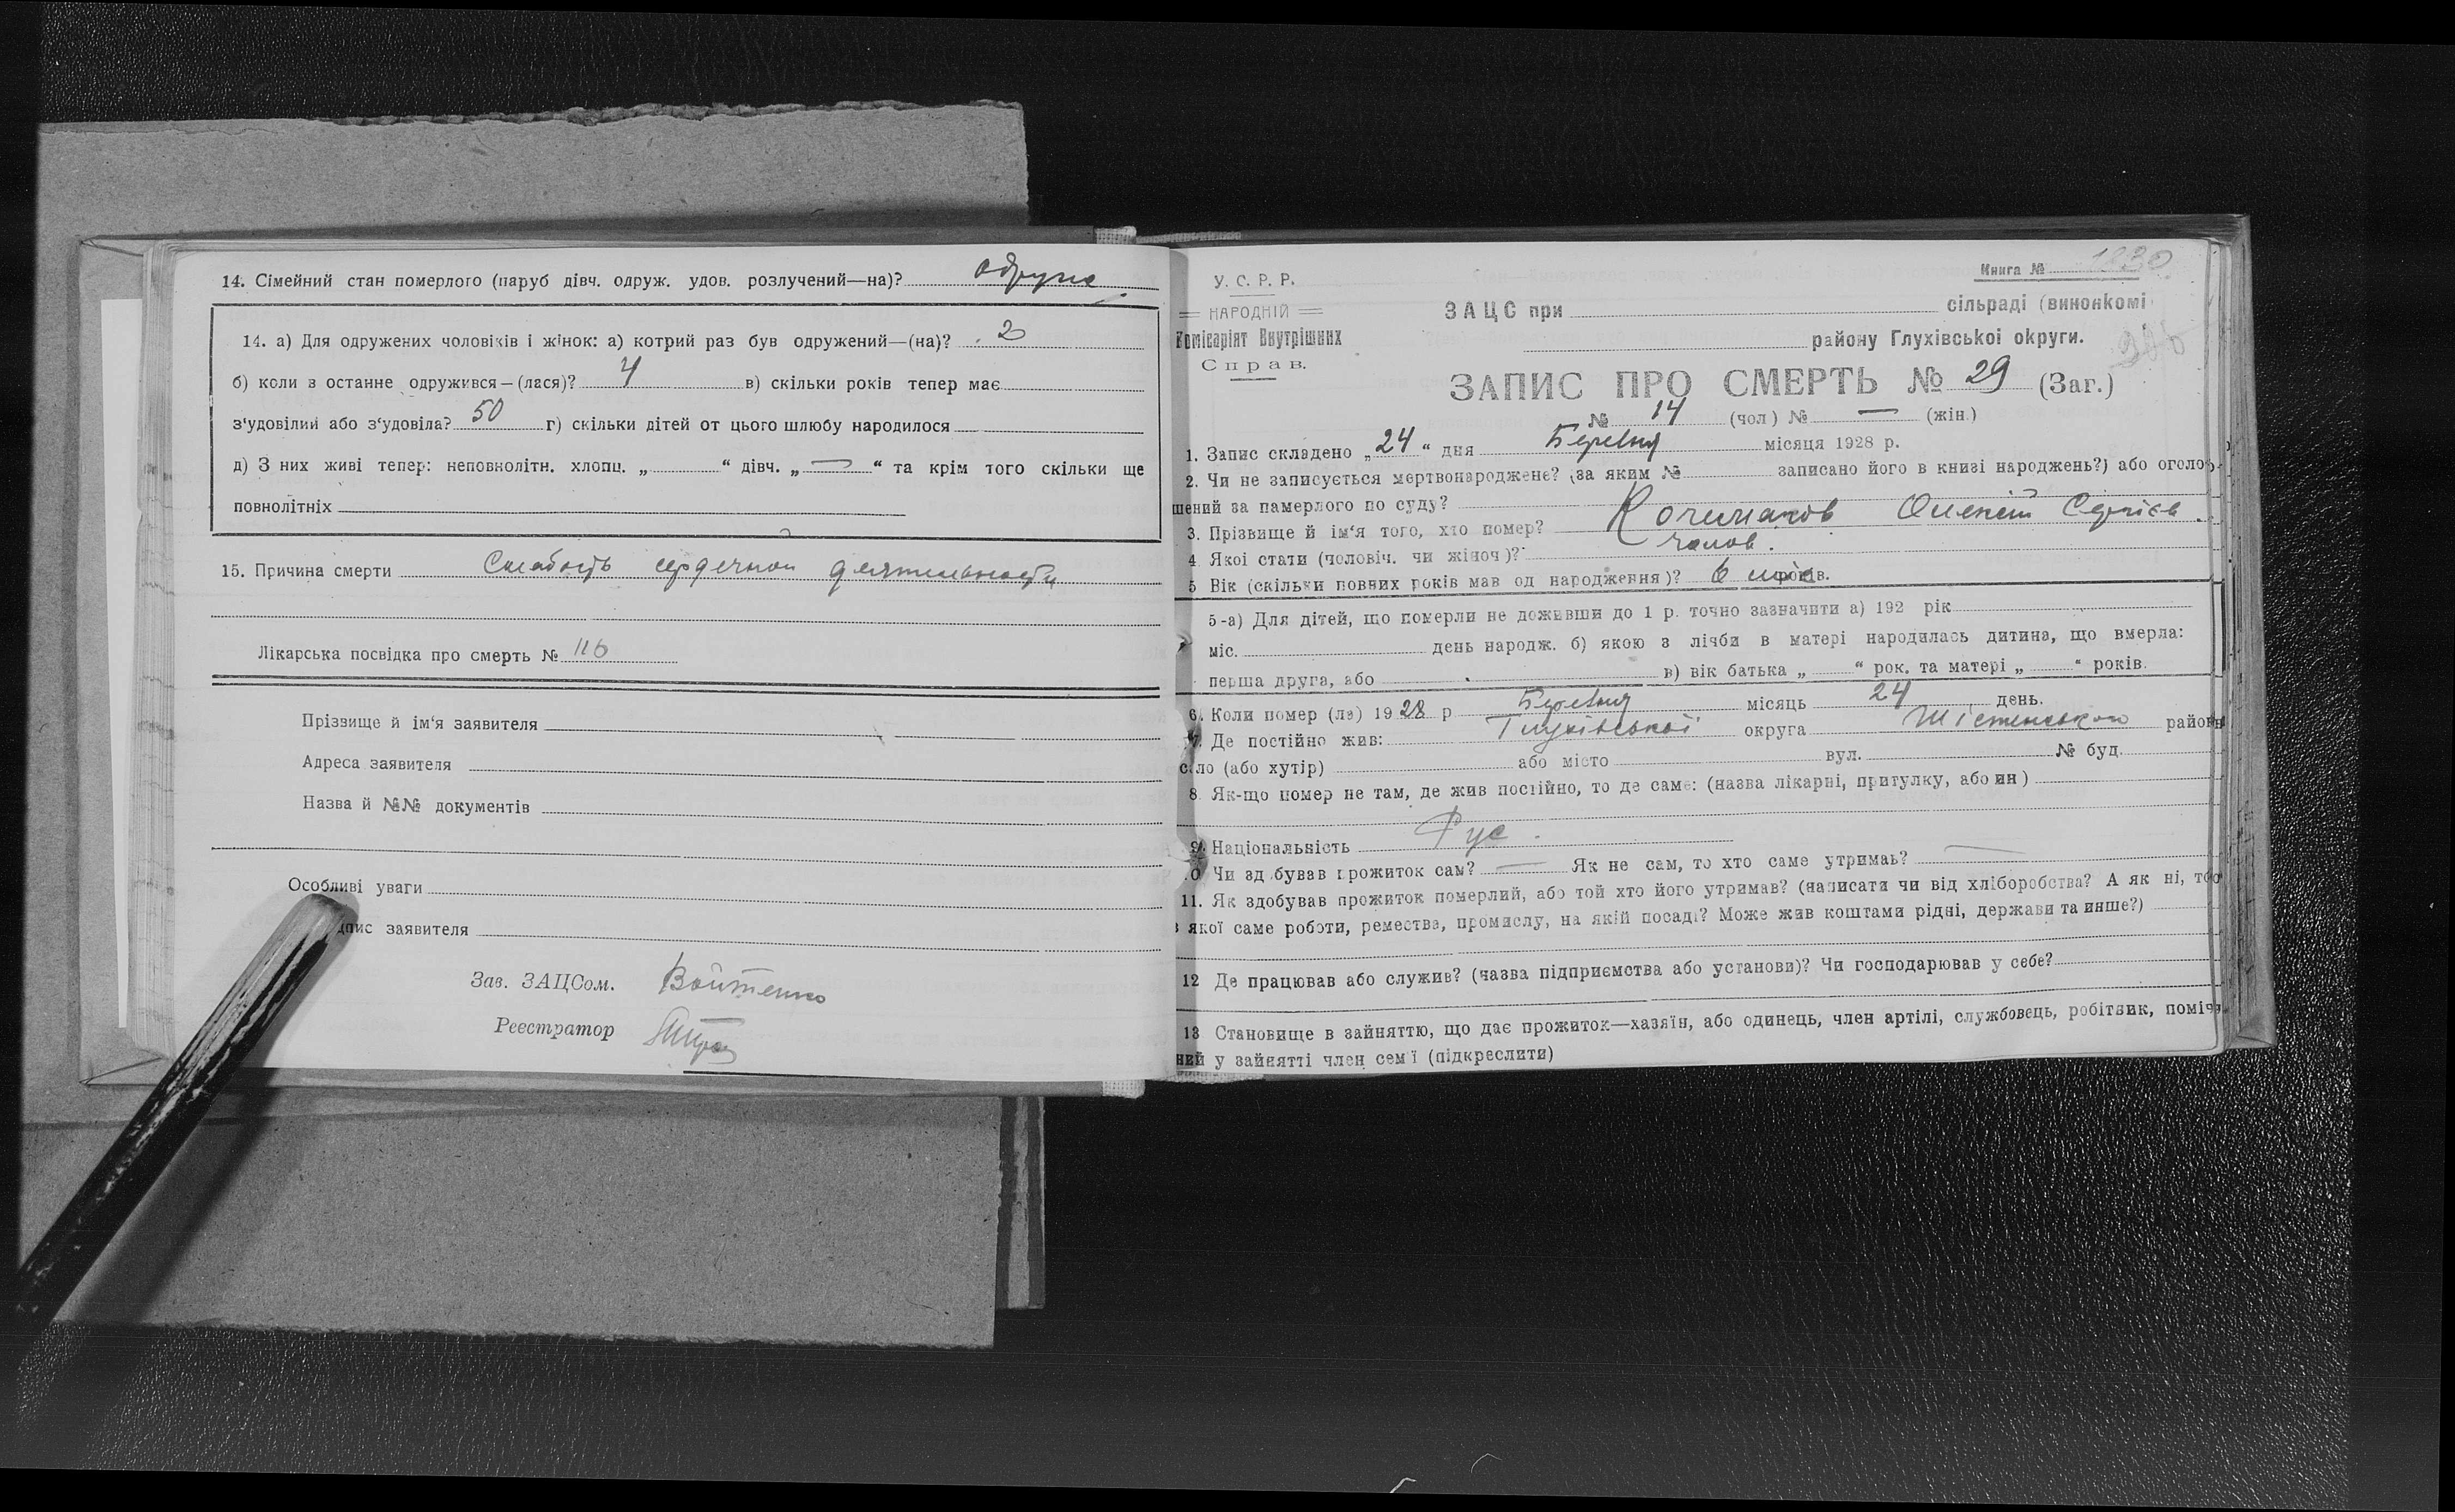 14. Сімейний стан померлого (паруб дівч. одруж. удов. розлучений—на)? одруже
14. а) Для одружених чоловіків і жінок: а) котрий раз був одружений—(на)? 2
б) коли в останне одружився—(лася)? 4 в) скільки років тепер має
з‘удовілий або з‘удовіла? 50 г) скільки дітей от цього шлюбу народилося
д) З них живі тепер: неповнолітн. хлопц. „ “ дівч. „ — “ та крім того скільки ще
повнолітніх
15. Причина смерти Слабость сердечной деятельности
Лікарська посвідка про смерть № 116
Прізвище й ім‘я заявителя
Адреса заявителя
Назва й №№ документів
Особливі уваги
дпис заявителя
Зав. ЗАЦСом. Войтенко
Реестратор
Книга №
У. С. Р. Р.
НАРОДНІЙ
Комісаріят Внутрішних
Справ.
ЗАЦС при сільраді (винонкомі
району Глухівської округи.
ЗАПИС ПРО СМЕРТЬ № 29 (Заг.)
№ 14 (чол) № — (жін.)
1. Запис складено „24“ дня Березня місяця 1928 р.
2. Чи не записується мертвонароджене? (за яким № записано його в книзі народжень?) або оголо
шений за памерлого по суду?
3. Прізвище й ім‘я того, хто помер? Олексій Сергієв.
4. Якої стати (чоловіч. чи жіноч)? чолов.
5 Вік (скільки повних років мав од народження)? 6 років.
5-а) Для дітей, що померли не доживши до 1 р. точно зазначити а) 192 рік
міс. день народж. б) якою з лічби в матері народилась дитина, що вмерла:
перша друга, або в) вік батька „ “ рок. та матері „ “ років.
6. Коли помер (ла) 1928 р Березня місяць 24 день.
7. Де постійно жив: Глухівської округа район
село (або хутір) або місто вул. № буд.
8. Як-що помер не там, де жив постійно, то де саме: (назва лікарні, притулку, або ин)
9. Національність Рус.
10. Чи здобував прожиток сам? — Як не сам, то хто саме утримаь? —
11. Як здобував прожиток померлий, або той хто його утримав? (написати чи від хліборобства? А як ні, то
з якої саме роботи, ремества, промислу, на якій посаді? Може жив коштами рідні, держави та инше?)
12 Де працював або служив? (назва підприємства або установи)? Чи господарював у себе?
13 Становище в зайняттю, що дає прожиток—хазяїн, або одинець, член артілі, службовець, робітник, поміч
ний у зайнятті член сем‘ї (підкреслити)